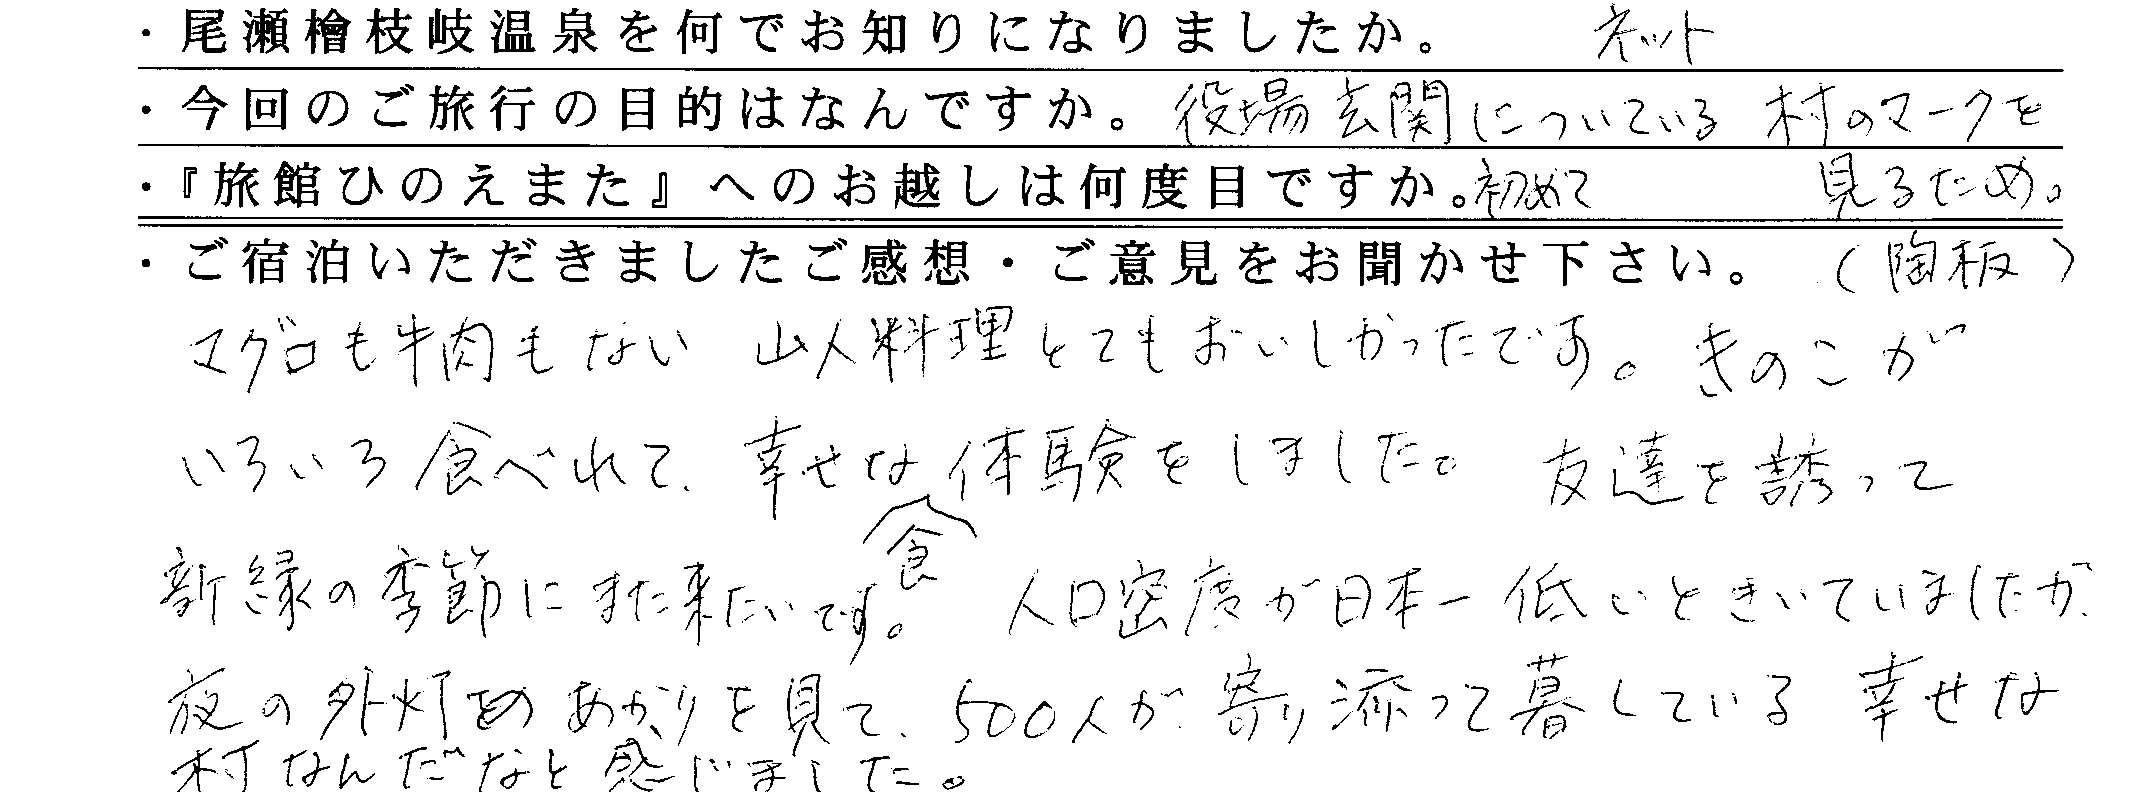 ・尾瀬檜枝岐温泉を何でお知りになりましたか。 ネット
・今回のご旅行の目的はなんですか。役場玄関についている 村のマークを
・『旅館ひのえまた』へのお越しは何度目ですか。初めて 見るため。
・ご宿泊いただきましたご感想・ご意見をお聞かせ下さい。 (陶板)
マグロも牛肉もない 山人料理とてもおいしかったです。きのこが
いろいろ食べれて、幸せな食体験をしました。友達を誘って
新緑の季節にまた来たいです。 人口密度が日本一低いときいていましたが、
夜の外灯のあかりを見て、500人が寄り添って暮している幸せな
村なんだなと感じました。